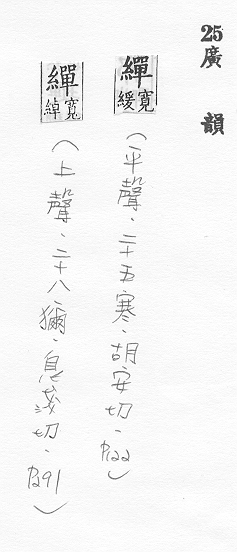 25廣 韻
繟寬緩（平聲．二十五寒．胡安切．P122）
繟寬綽（上聲．二十八獮．息淺切．P291）